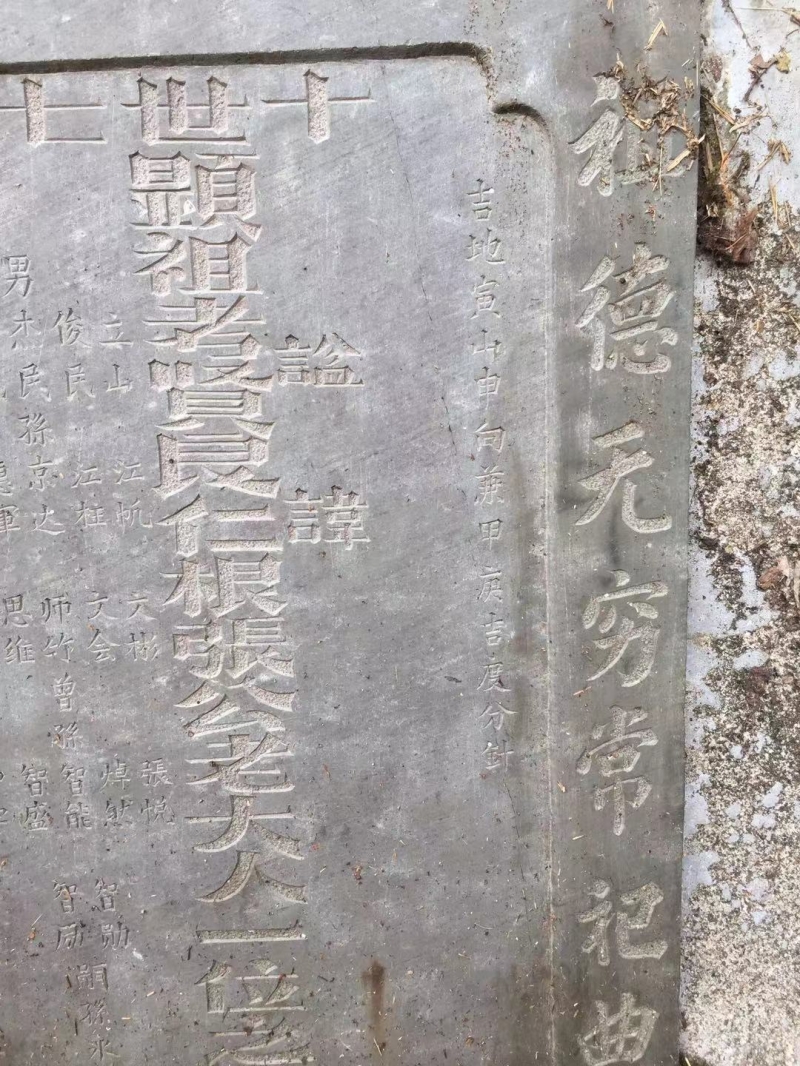 祖德无穷常祀典
吉地寅山申向兼甲庚吉度分針
十 謚 諱
世顕祖考賢良仁根張公老大人一位之
立山 江帆 文彬 張悦
俊民 江柱 文会 焯然 智勋
男 杰民 孫 京达 师竹 曾孫 智能 嗣孫 永
軍 思维 智盛 智
七